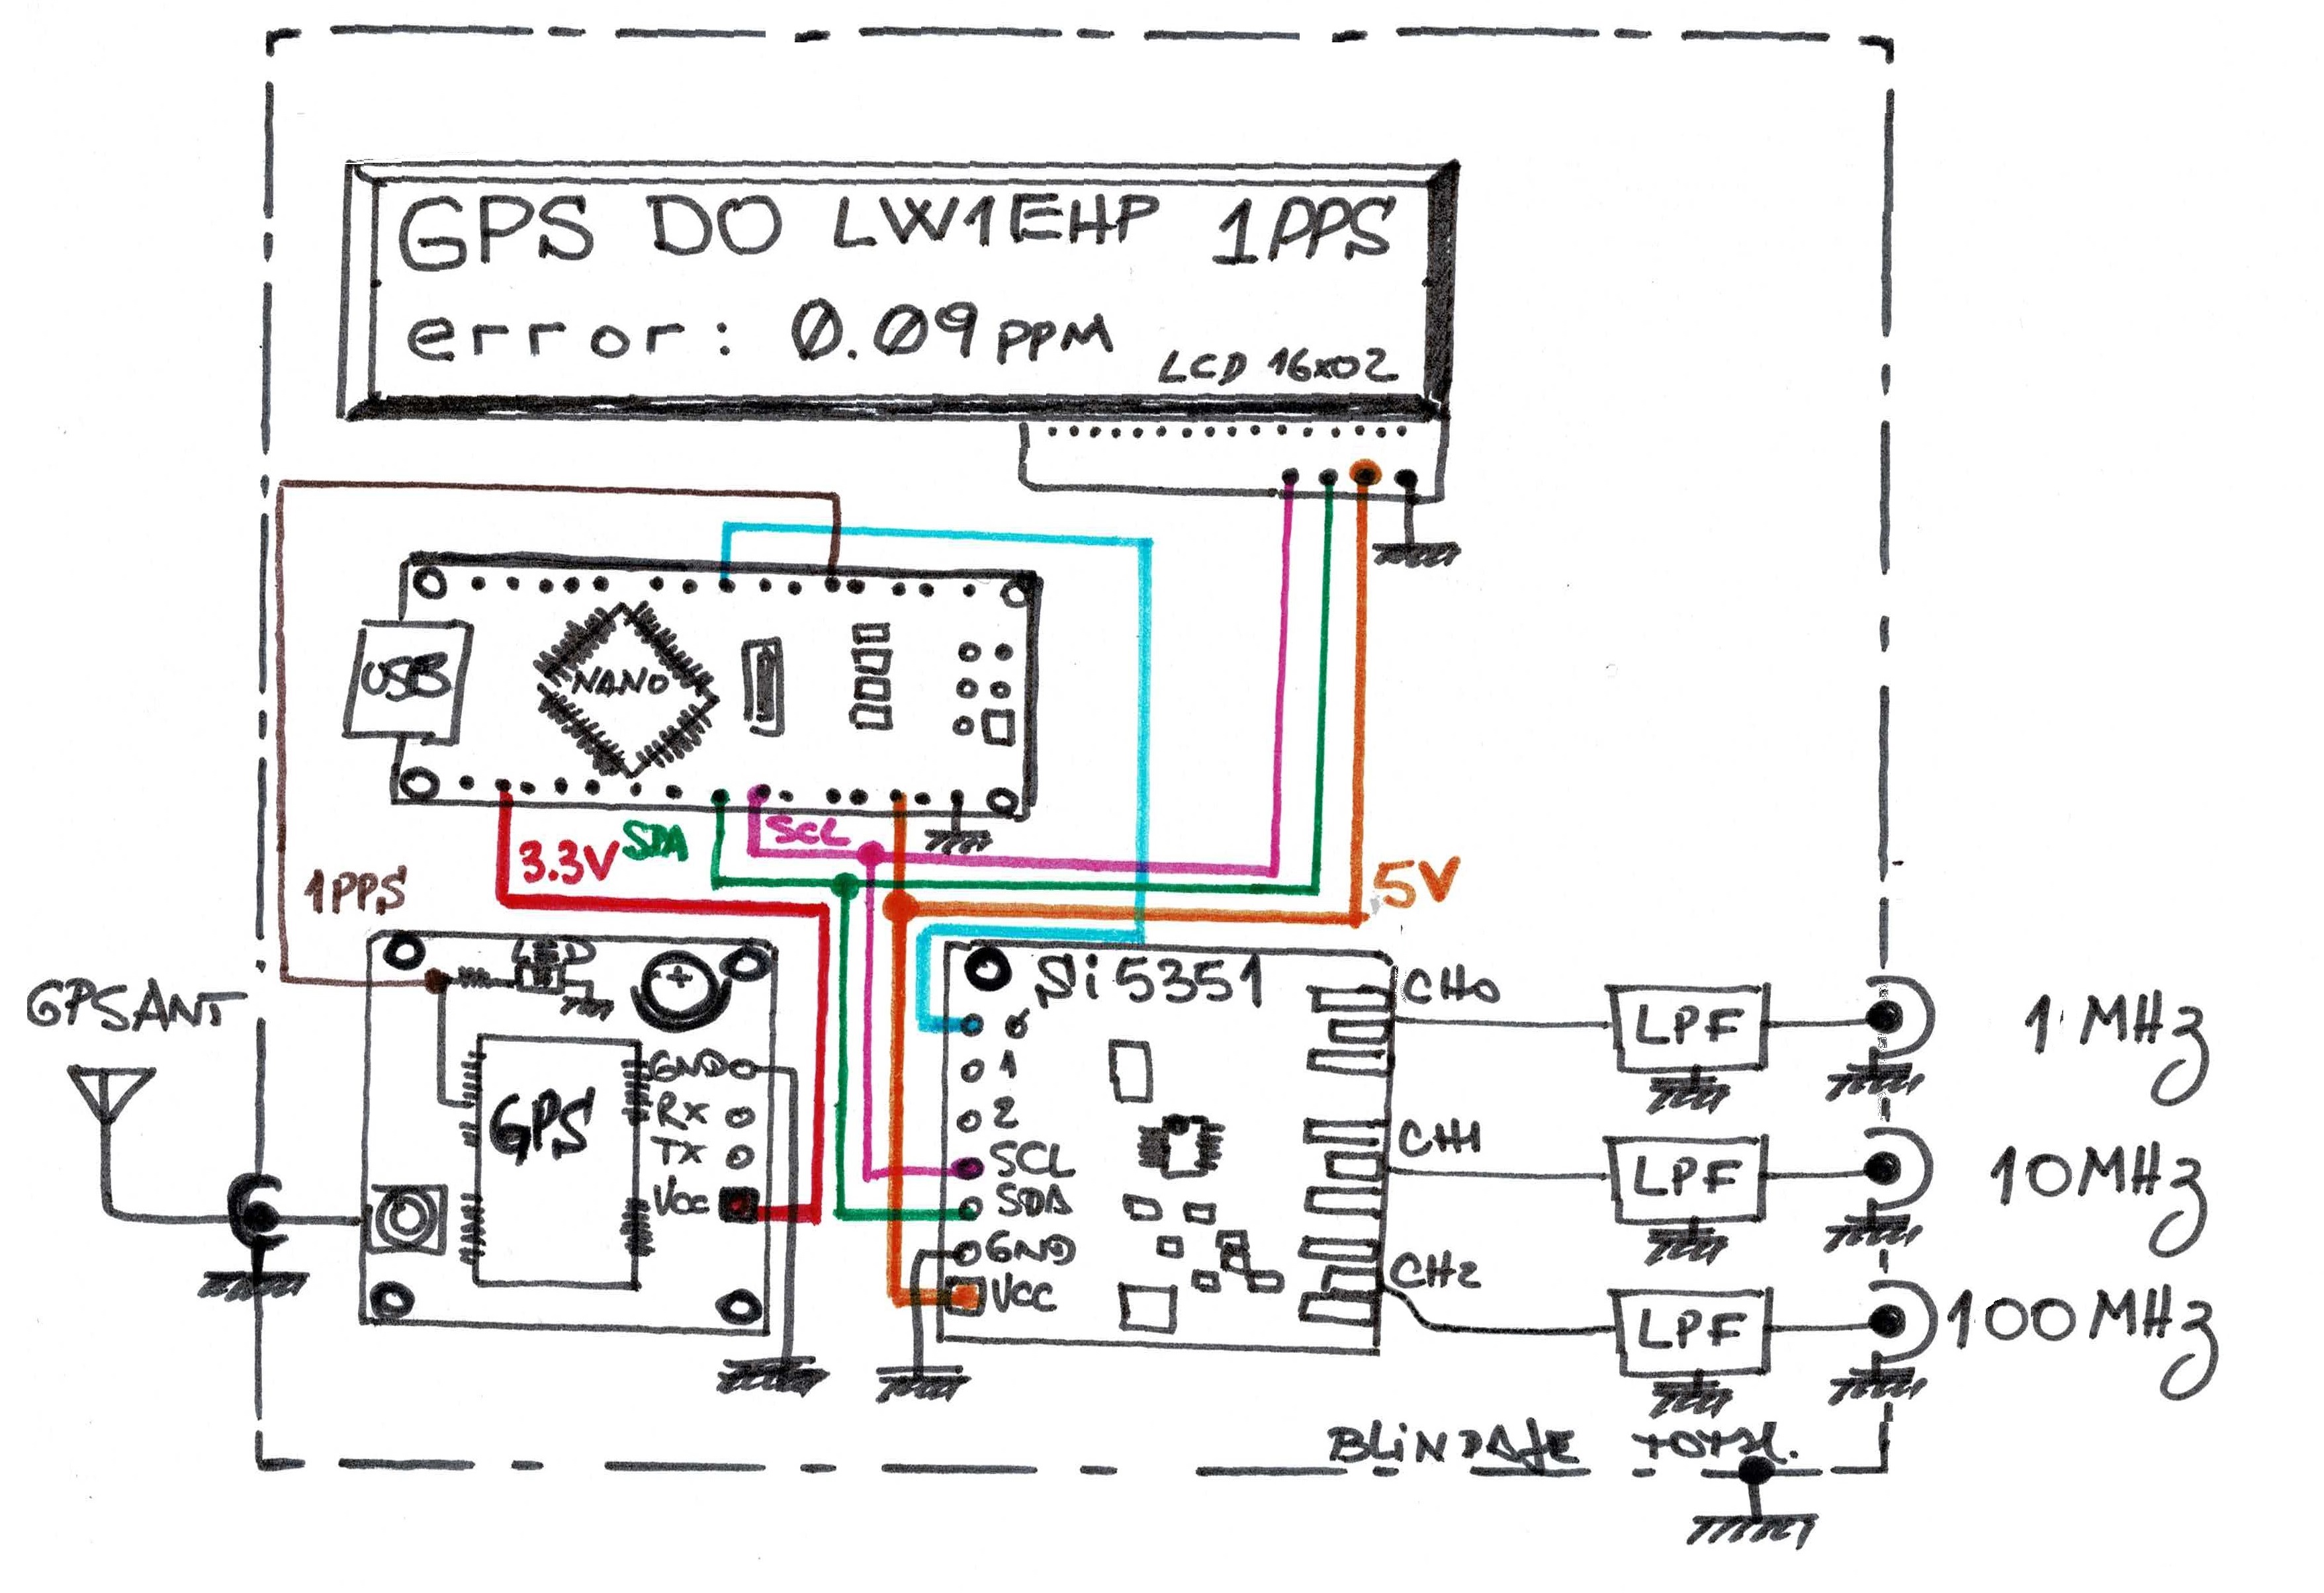 GPS DO LW1EHP 1PPS
error: 0.09 PPM
LCD 16x02
USB
NANO
3.3V
SDA
SCL
5V
1PPS
GPS ANT
LED
GPS
GND
Rx
TX
Vcc
Si5351
0
1
2
SCL
SDA
GND
VCC
CH0
CH1
CH2
LPF
LPF
LPF
1 MHz
10 MHz
100 MHz
BLiNDAJE TOTAL.